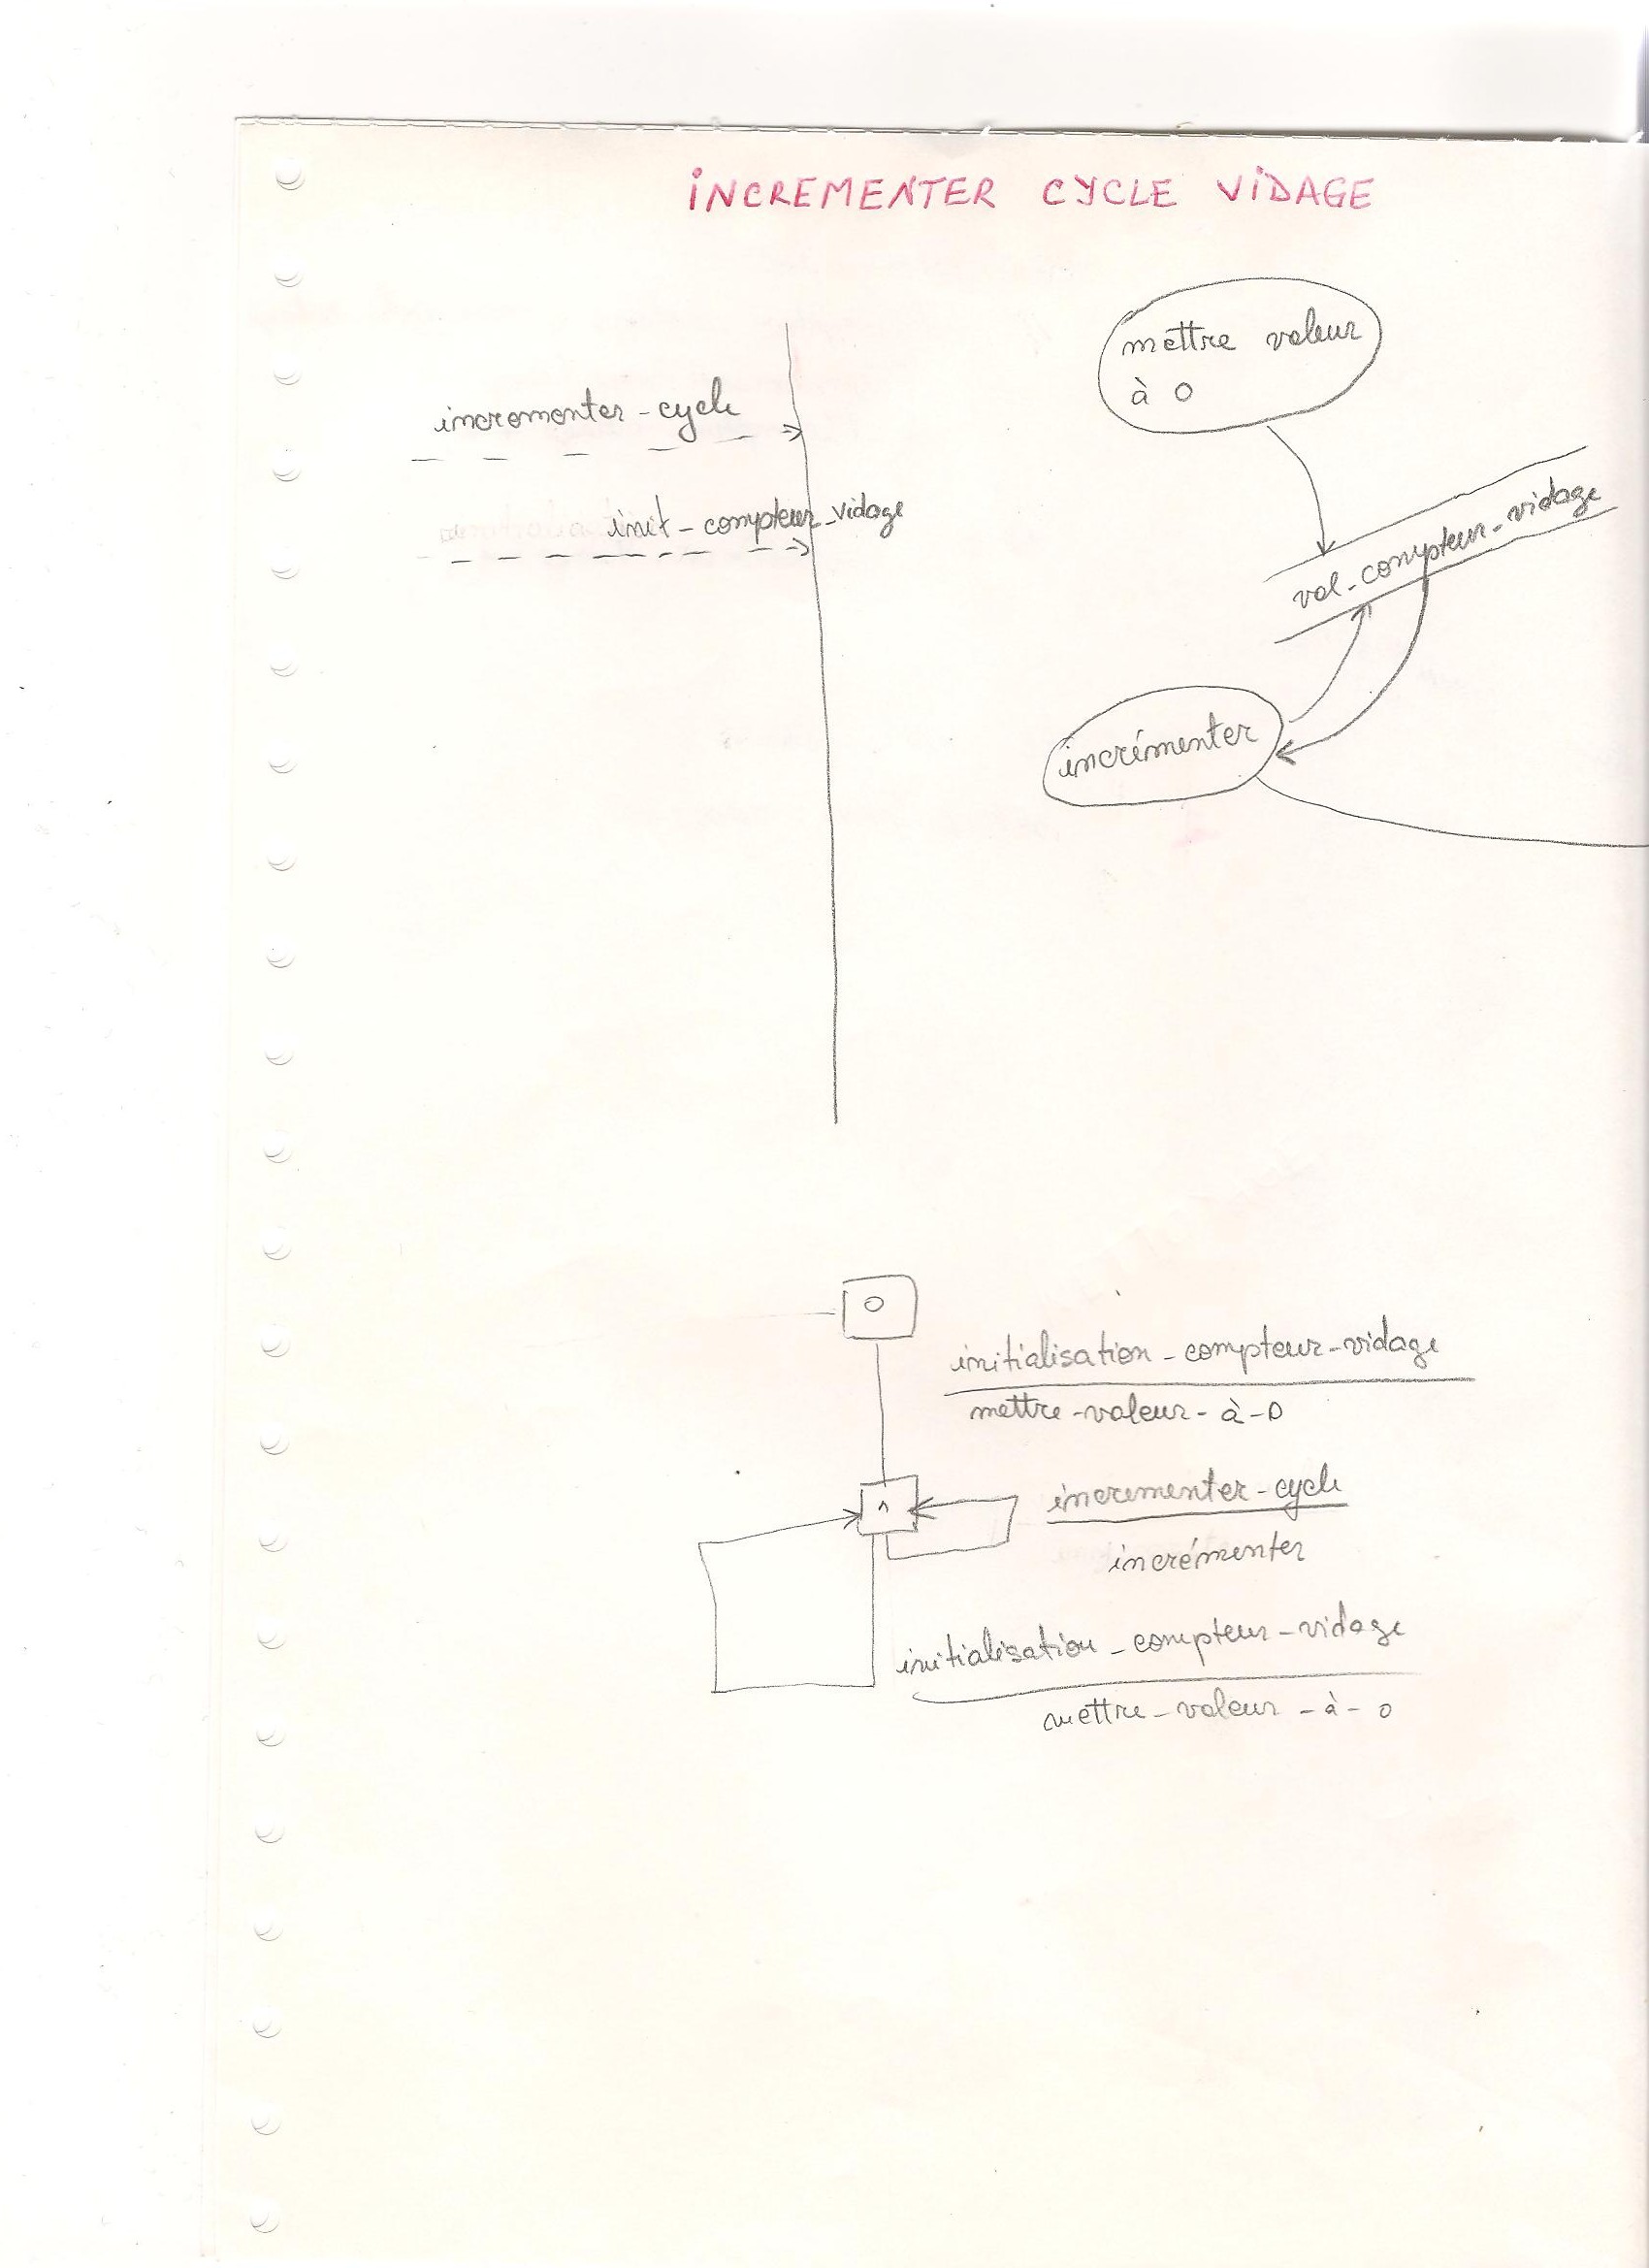 INCREMENTER CYCLE VIDAGE
mettre valeur
à 0
incrementer-cycle
init-compteur-vidage
val-compteur-vidage
incrémenter
0
initialisation-compteur-vidage
mettre-valeur-à-0
1
incrementer-cycle
incrémenter
initialisation-compteur-vidage
mettre-valeur-à-0